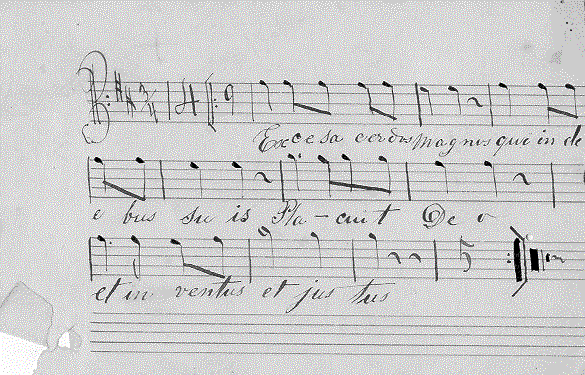 Ecce sa cerdos magnus qui in di
e bus su is Pla-cuit De o
et in ventus et jus tus